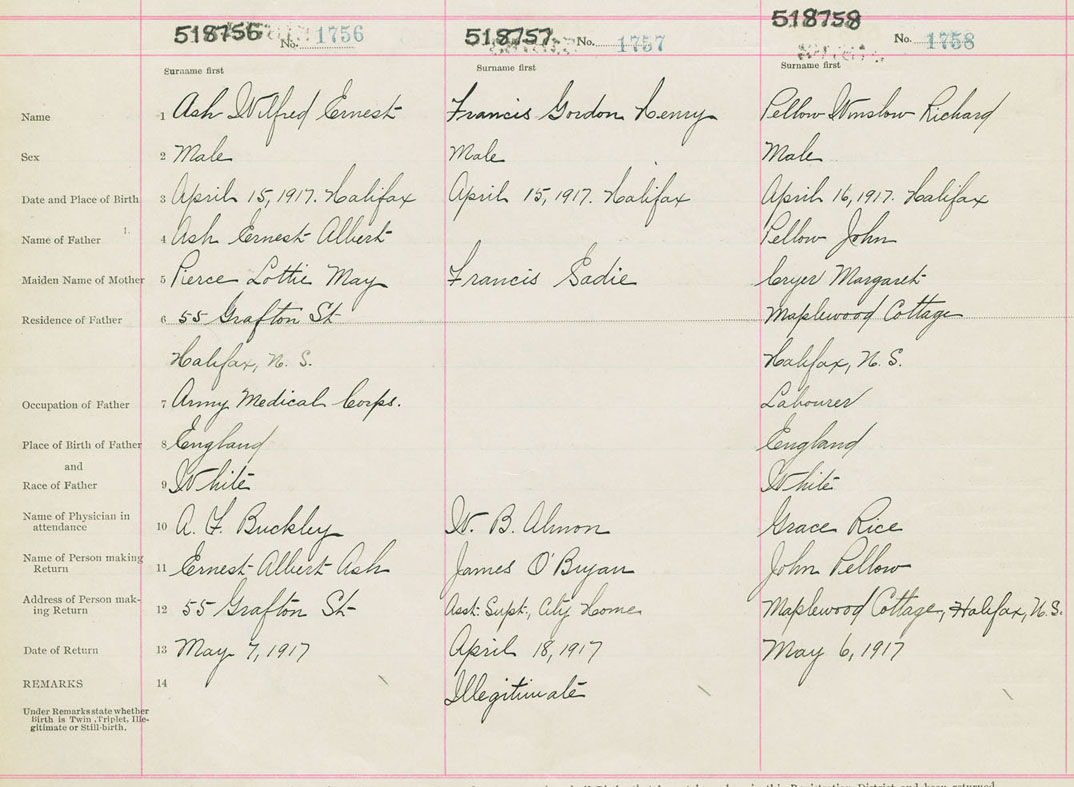 518756 No. 1756 518757 No. 1757 518758 No. 1758
Surname first Surname first Surname first
Name 1 Ash Wilfred Ernest Francis Gordon Henry Pellow Winslow Richard
Sex 2 Male Male Male
Date and Place of Birth 3 April 15, 1917. Halifax April 15, 1917. Halifax April 16, 1917. Halifax
Name of Father 4 Ash Ernest Albert Pellow John
Maiden Name of Mother 5 Pierce Lottie May Francis Sadie Cryer Margaret
Residence of Father 6 55 Grafton St Maplewood Cottage
Halifax, N. S. Halifax, N. S.
Occupation of Father 7 Army Medical Corps. Labourer
Place of Birth of Father 8 England England
and
Race of Father 9 White White
Name of Physician in
attendance 10 A. F. Buckley W. B. Almon Grace Rice
Name of Person making
Return 11 Ernest Albert Ash James O'Bryan John Pellow
Address of Person mak-
ing Return 12 55 Grafton St Asst. Supt, City Home Maplewood Cottage, Halifax, N.S.
Date of Return 13 May 7, 1917 April 18, 1917 May 6, 1917
REMARKS 14 Illegitimate
Under Remarks state whether
Birth is Twin, Triplet, Ille-
gitimate or Still-birth.
in this Registration District and been returned